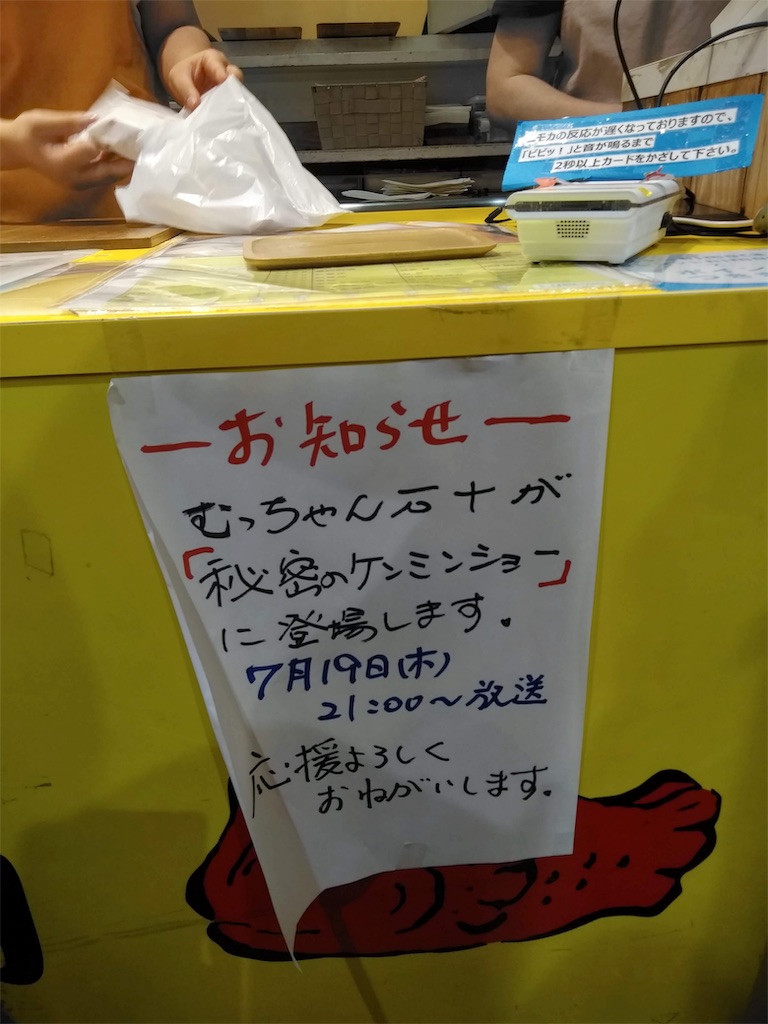 ニモカの反応が遅くなっておりますので、
「ピピッ！」と音が鳴るまで
2秒以上カードをかざして下さい。
ーお知らせー
むっちゃん万十が
「秘密のケンミンショー」
に登場します。
7月19日(木)
21:00～放送
応援よろしく
おねがいします。